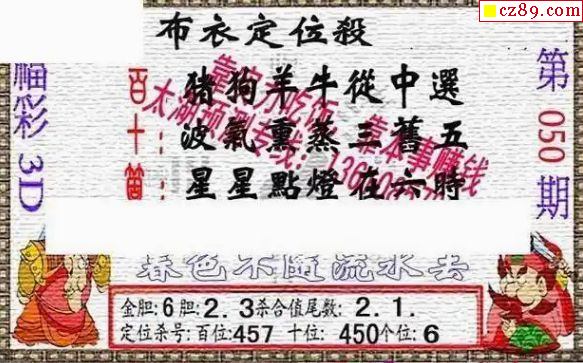 cz89.com
布衣定位殺
福彩3D
第050期
百:豬狗羊牛從中選
十:波氣熏蒸三舊五
個:星星點燈在六時
靠实力吃饭 靠本事赚钱
太湖预测专线:
春色不随流水去
金胆:6胆:2.3杀合值尾数:2.1.
定位杀号:百位:457 十位:450个位:6